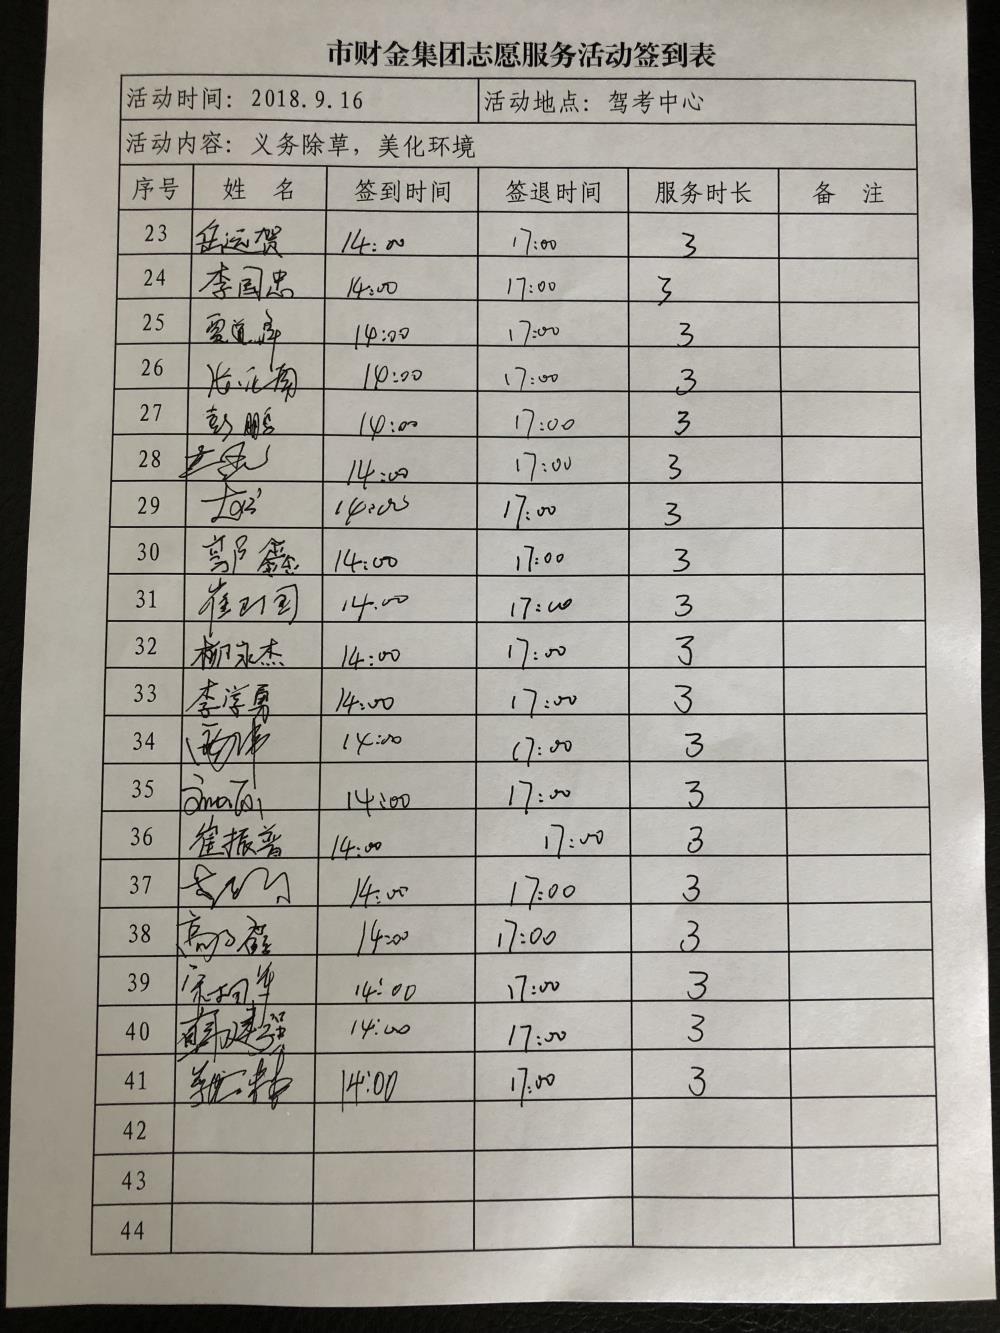 市财金集团志愿服务活动签到表
活动时间：2018.9.16 活动地点：驾考中心
活动内容：义务除草，美化环境
序号 姓 名 签到时间 签退时间 服务时长 备 注
23 岳运贺 14:00 17:00 3
24 李国忠 14:00 17:00 3
25 14:00 17:00 3
26 14:00 17:00 3
27 彭鹏 14:00 17:00 3
28 14:00 17:00 3
29 14:00 17:00 3
30 鑫 14:00 17:00 3
31 崔 国 14:00 17:00 3
32 柳家杰 14:00 17:00 3
33 李学勇 14:00 17:00 3
34 14:00 17:00 3
35 14:00 17:00 3
36 崔振普 14:00 17:00 3
37 14:00 17:00 3
38 高 14:00 17:00 3
39 14:00 17:00 3
40 14:00 17:00 3
41 14:00 17:00 3
42
43
44